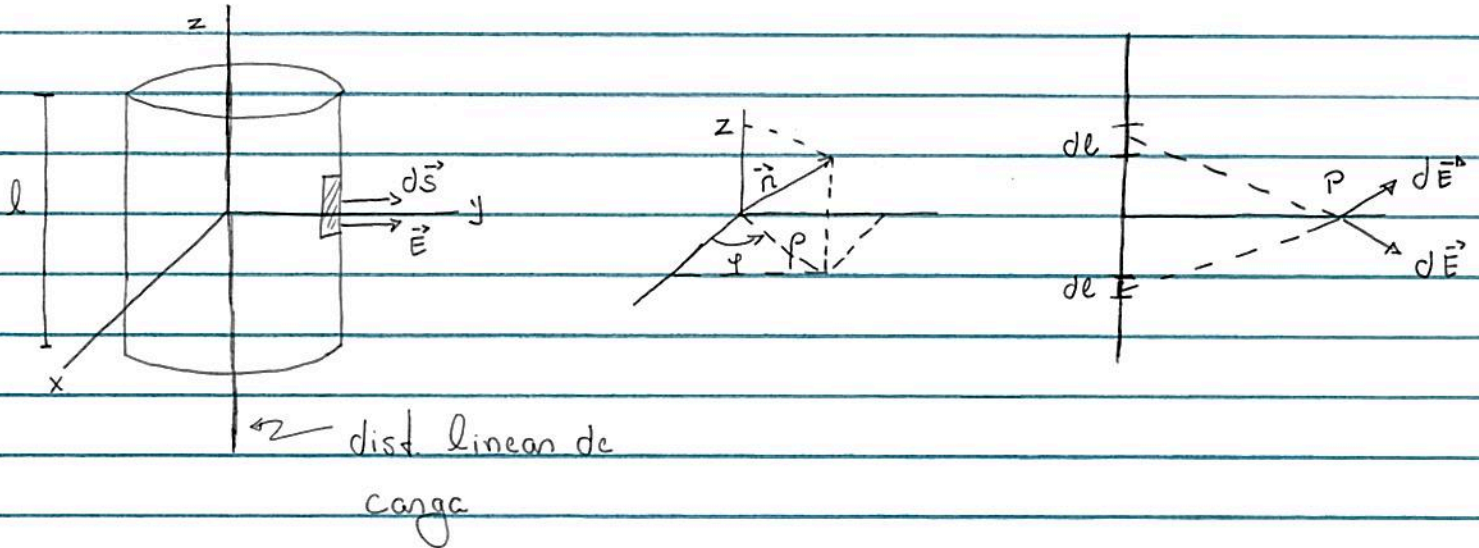 z
l
dS⃗
y
E⃗
x
dist. linear de
carga
z
r⃗
φ
ρ
dl
P
dE⃗
dl
dE⃗